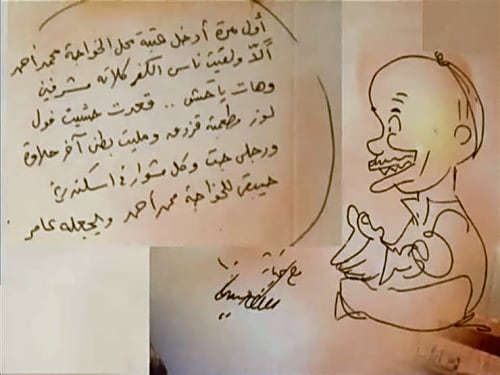 أول مرة أدخل هتبة محل الخواجة محمد أحمد
ألاّ ولقيت ناس الكفر كلاته مشرفين
وهات يا حش .. قعدت حشيت فول
لوز مطعمية قردمه وحليت بطن آخر حلاوة
ورجلى جبت وكل مشوار فى اسكندرية
حيبقى للخواجة محمد أحمد ويجعله عامر